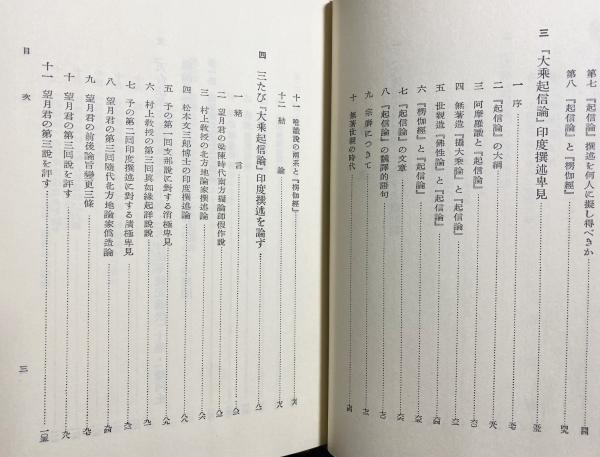 第七 『起信論』撰述を何人に擬し得べきか
第八 『起信論』と『楞伽經』
三 『大乘起信論』印度撰述卑見
一 序
二 『起信論』の大綱
三 阿摩羅識と『起信論』
四 無著造『攝大乘論』と『起信論』
五 世親造『佛性論』と『起信論』
六 『楞伽經』と『起信論』
七 『起信論』の文章
八 『起信論』の飜譯的語句
九 宗靜につきて
十 無著世親の時代
十一 唯識說の兩系と『楞伽經』
十二 結論
四 三たび『大乘起信論』印度撰述を論ず
一 緖言
二 望月君の梁陳時代南方攝論師假作說
三 村上敎授の北方地論家撰述論
四 松本文三郞博士の印度撰述論
五 予の第一回支那說に對する消極卑見
六 村上敎授の第三回眞如緣起詳說說
七 予の第二回印度撰述に對する積極卑見
八 望月君の第三回隨代北方地論家僞造論
九 望月君の前後論旨變更三條
十 望月君の第三回說を評す
十一 望月君の第三說を評す
目次
三